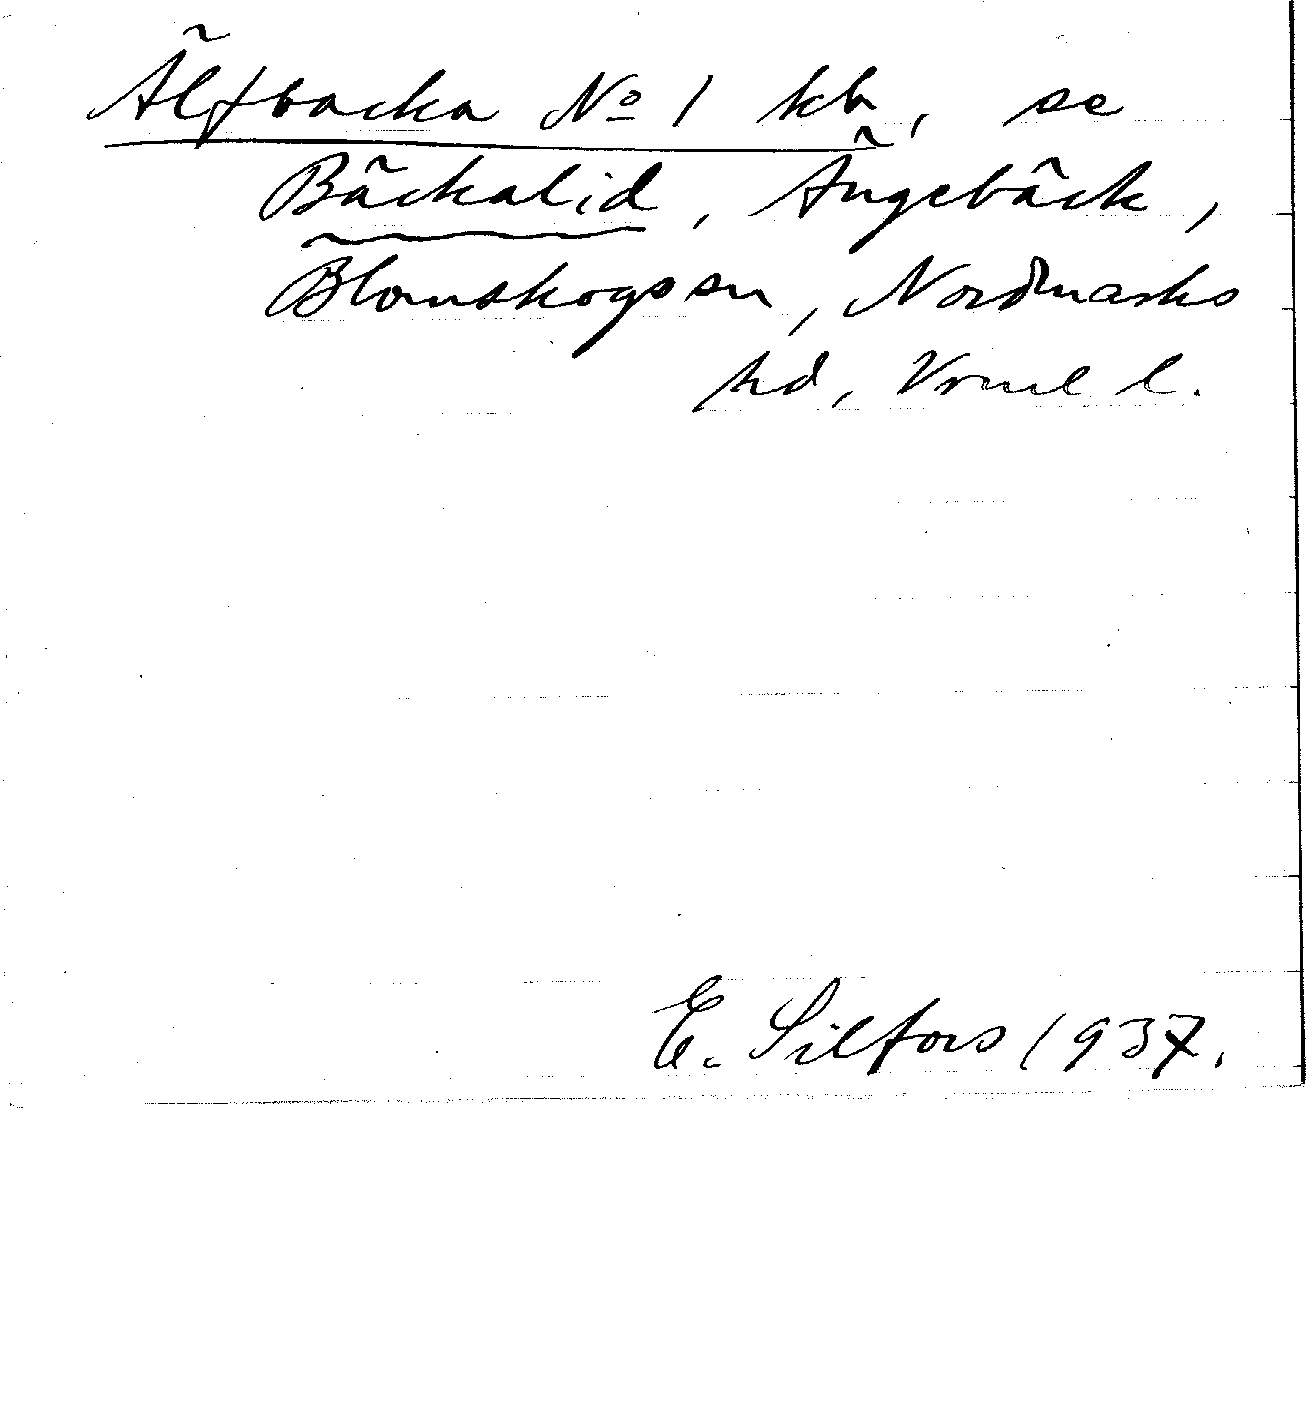 Älfbacka No 1 kb, se
Bäckalid, Ängebäck,
Blomskogs sn, Nordmarks
hd, Vrml l.
E. Silfors 1937.